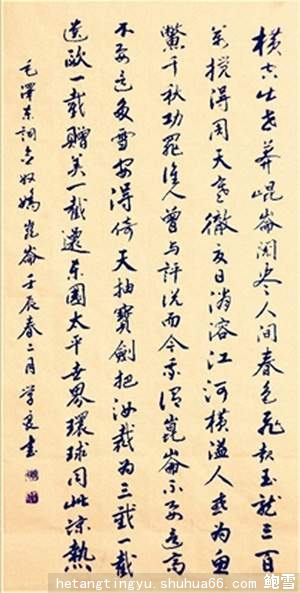 横空出世莽崐崙阅尽人间春色飞起玉龙三百
萬搅得周天寒徹夏日消溶江河横溢人或为鱼
鳖千秋功罪谁人曾与评说而今我谓崑崙不要这高
不要这多雪安得倚天抽寶劍把汝裁为三截一截
遗欧一截赠美一截還东國太平世界環球同此凉熱
毛澤东词念奴嬌崑崙壬辰春二月学书
鲍雪
hetangtingyu.shuhua66.com